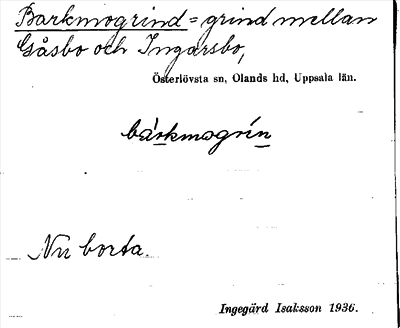 Barkmogrind = grind mellan
Gåsbo och Ingarsbo,
Österlövsta sn, Olands hd, Uppsala län.
bárkmogrín
Nu borta.
Ingegärd Isaksson 1936.